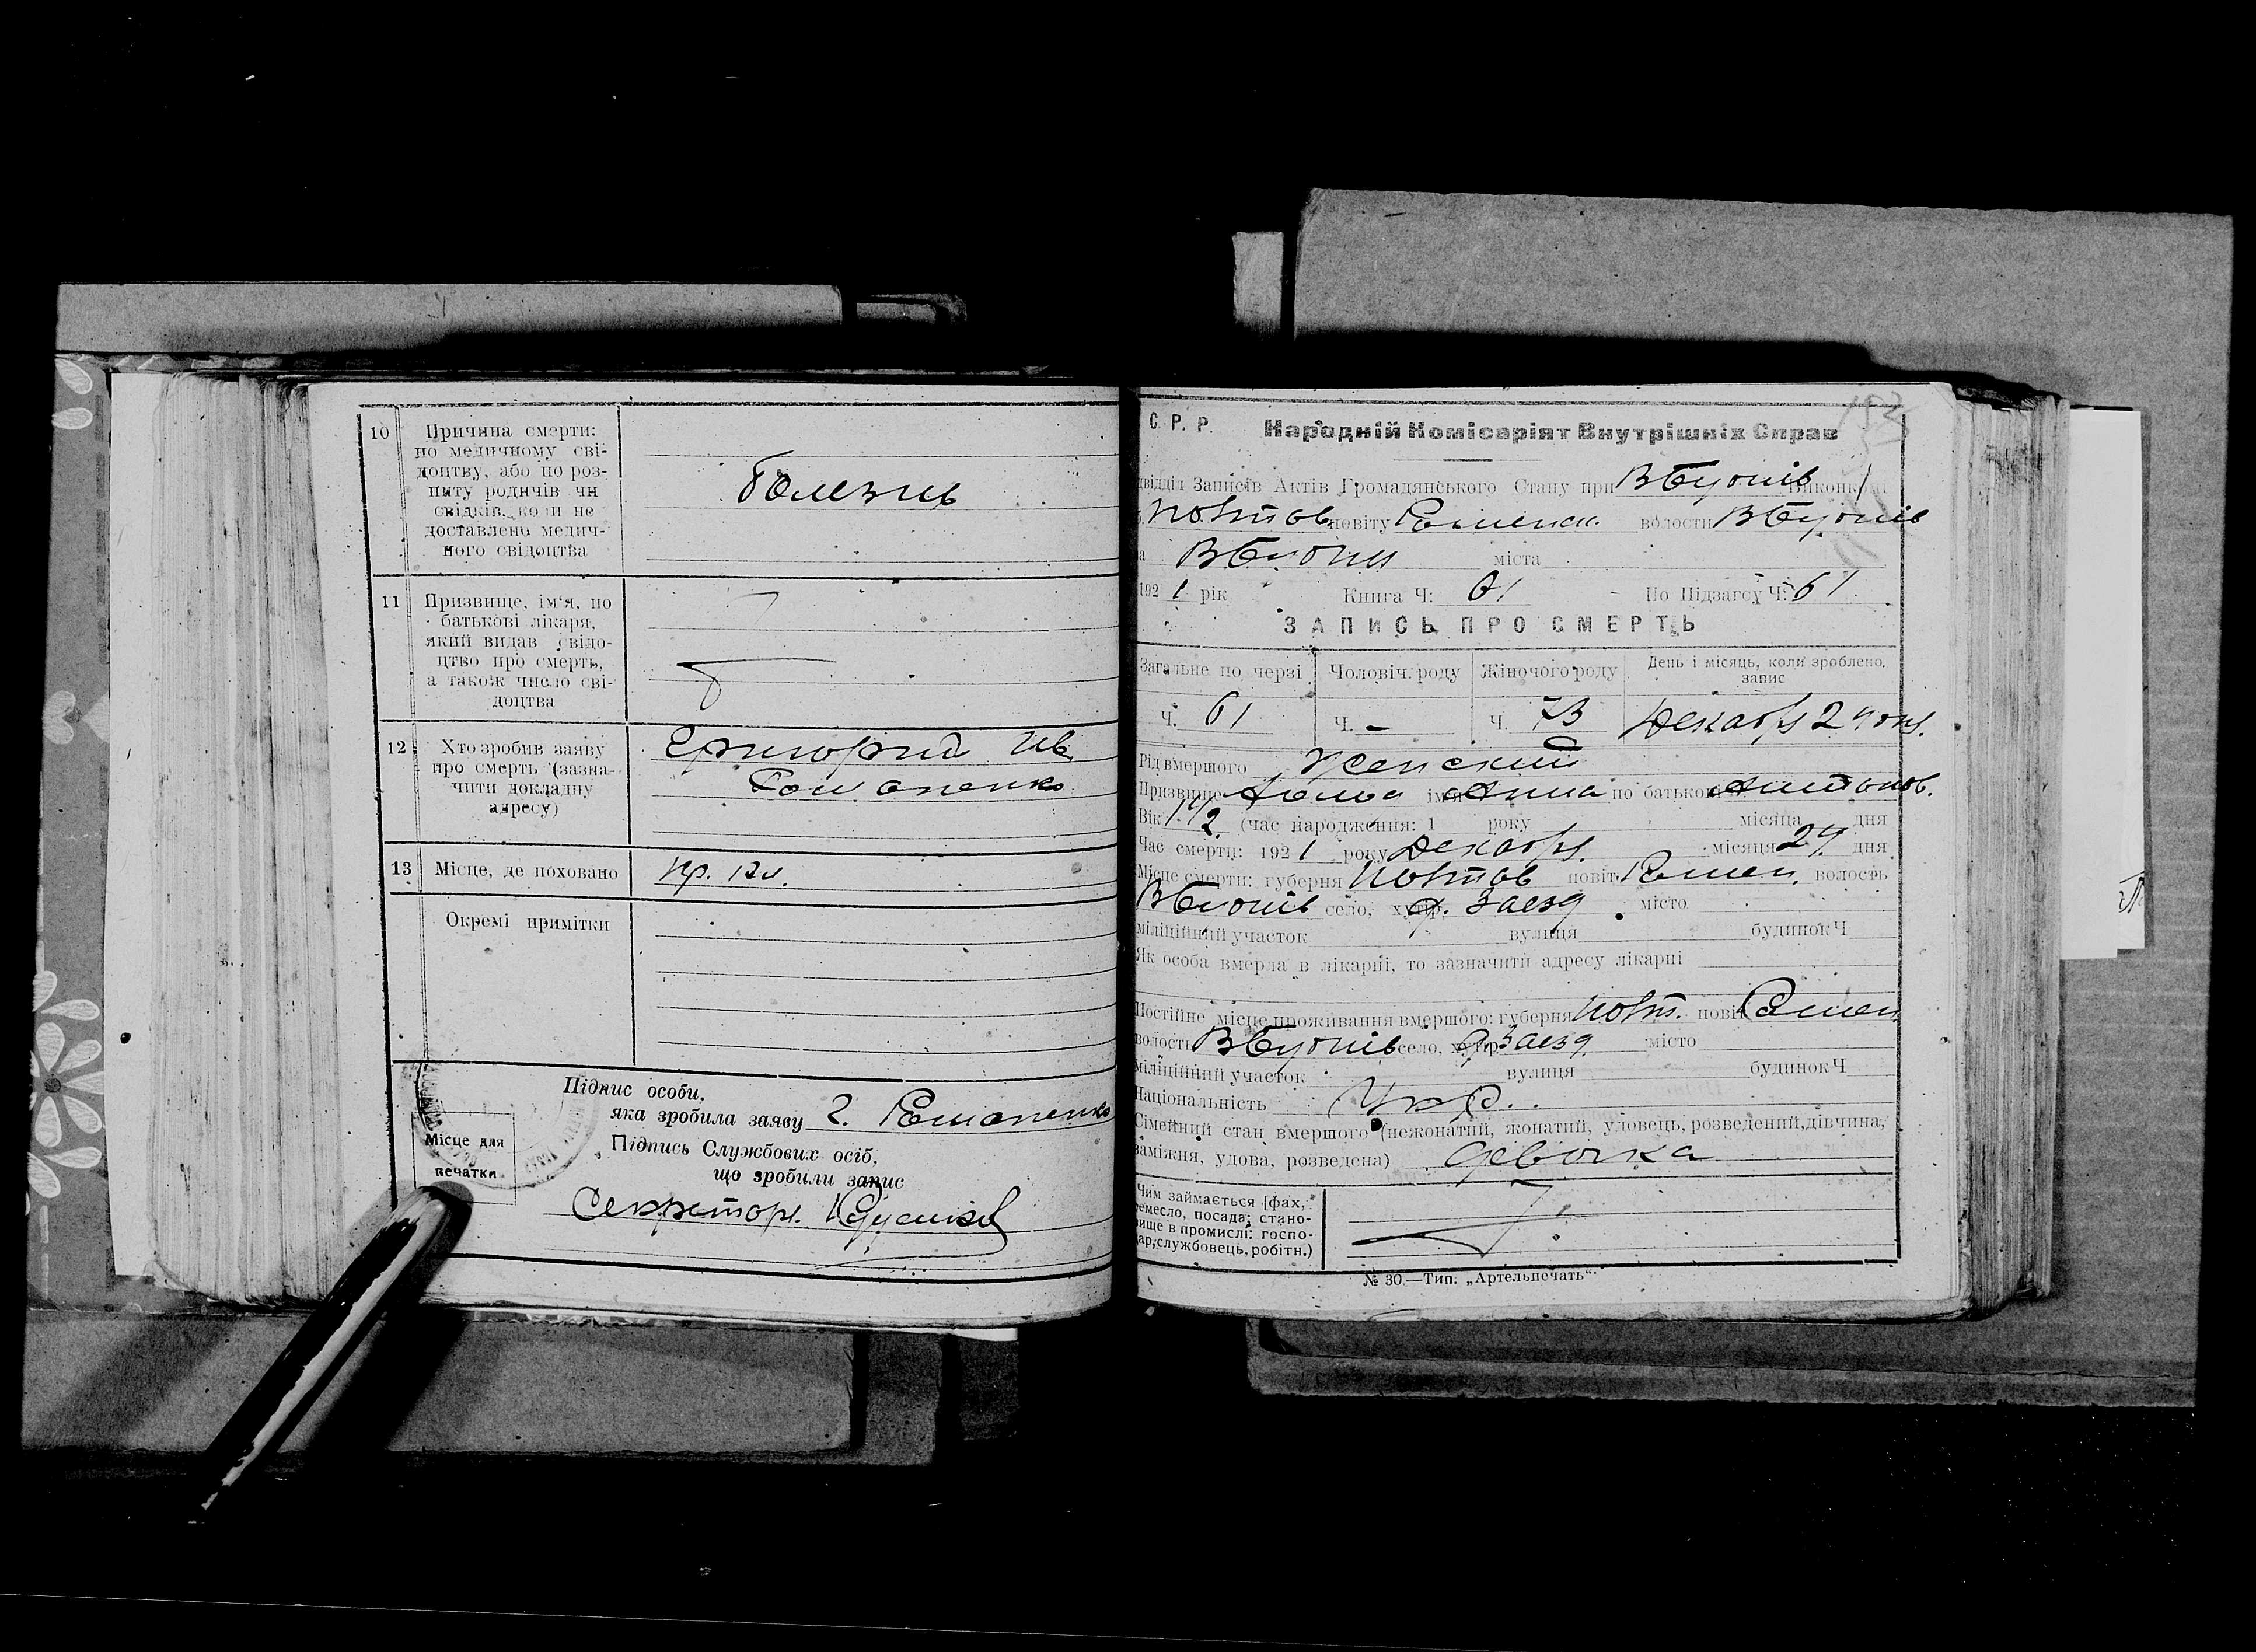 10 Причина смерти:
по медичному сві-
доцтву, або по роз-
питу родичів чи
свідків, коли не
доставлено медич-
ного свідоцтва
болезнь
11 Призвище, ім'я, по
батькові лікаря,
який видав свідо-
цтво про смерть,
а також число сві-
доцтва
12 Хто зробив заяву
про смерть (зазна-
чити докладну
адресу)
Григорий Ив
Романенко
13 Місце, де поховано
пр. кл.
Окремі примітки
Підпис особи,
яка зробила заяву Г. Романенко
Місце для
печатки
Підпись Службових осіб,
що зробили запис
Секретарь
С. Р. Р. Народній Комісаріят Внутрішніх Справ
Записів Актів Громадянського Стану при
Полтов повіту Ромен. волости
міста
1921 рік Книга Ч: 61 По Підзагсу Ч: 61
ЗАПИСЬ ПРО СМЕРТЬ
Загальне по черзі Чоловіч. роду Жіночого роду День і місяць, коли зроблено. запис
Ч. 61 Ч. - Ч. 73 Декабря 29 дня.
Рід вмершого Женский
Призвище ім'я Анна по батькові Антонов.
Вік 1 1/2 (час народження: 1 року місяца дня
Час смерти: 1921 року Декабря. місяця 29 дня
Місце смерти: губерня Полтов повіт Ромен. волость
село, хутір д. Заезд місто
міліційний участок вулиця будинок Ч
Як особа вмерла в лікарні, то зазначити адресу лікарні
Постійне місце проживання вмершого: губерня Полт. повіт Ромен
волость село, хутір д Заезд місто
міліційний участок вулиця будинок Ч
Національність Укр.
Сімейний стан вмершого (нежонатий, жонатий, удовець, розведений, дівчина,
заміжня, удова, розведена) девочка
Чим займається (фах,
ремесло, посада; стано-
вище в промислі: госпо-
дар, службовець, робітн.)
№ 30.—Тип. „Артельпечать“